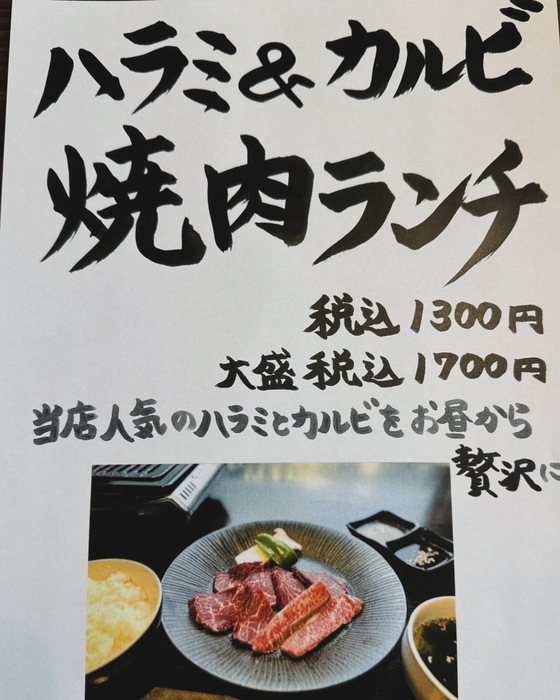 ハラミ&カルビ
焼肉ランチ
税込1300円
大盛 税込1700円
当店人気のハラミとカルビをお昼から
贅沢に